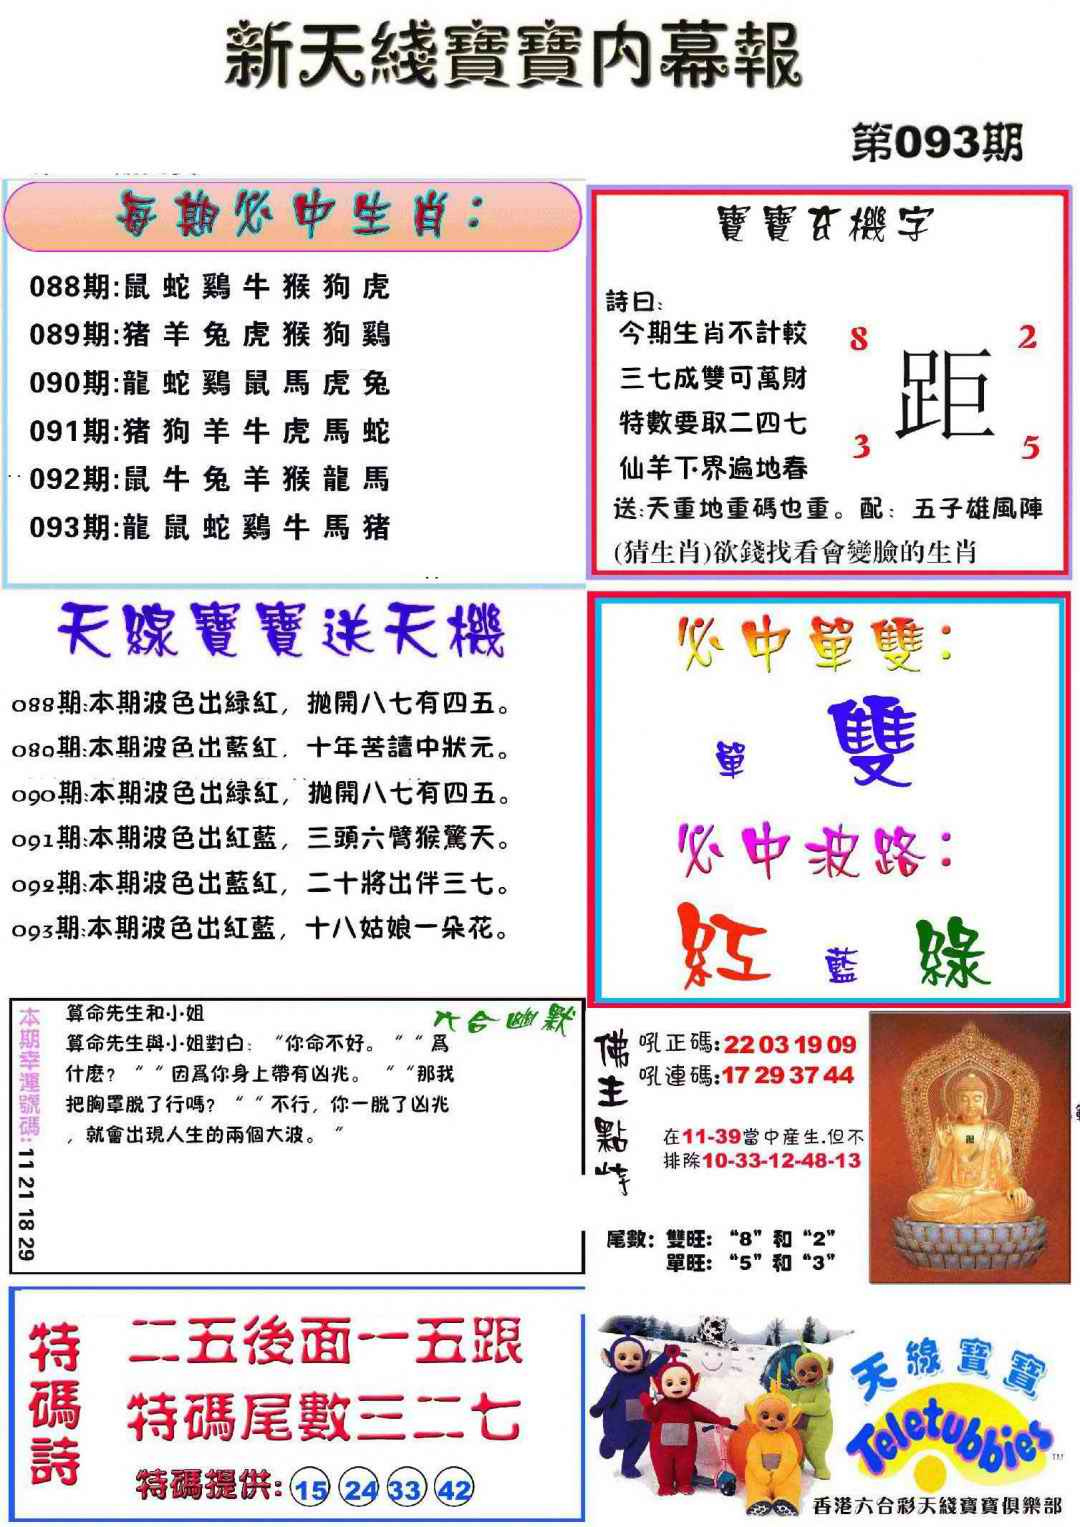 新天綫寶寶内幕報
第093期
每期必中生肖：
088期:鼠 蛇 鷄 牛 猴 狗 虎
089期:猪 羊 兔 虎 猴 狗 鷄
090期:龍 蛇 鷄 鼠 馬 虎 兔
091期:猪 狗 羊 牛 虎 馬 蛇
092期:鼠 牛 兔 羊 猴 龍 馬
093期:龍 鼠 蛇 鷄 牛 馬 猪
寶寶玄機字
詩曰:
今期生肖不計較
三七成雙可萬財
特數要取二四七
仙羊下界遍地春
8 2
距
3 5
送:天重地重碼也重。配：五子雄風陣
(猜生肖)欲錢找看會變臉的生肖
天線寶寶送天機
088期:本期波色出緑紅，抛開八七有四五。
089期:本期波色出藍紅，十年苦讀中狀元。
090期:本期波色出緑紅，抛開八七有四五。
091期:本期波色出紅藍，三頭六臂猴驚天。
092期:本期波色出藍紅，二十將出伴三七。
093期:本期波色出紅藍，十八姑娘一朵花。
必中單雙：
單 雙
必中波路：
紅 藍 綠
本期幸運號碼:11 21 18 29
六合幽默
算命先生和小姐
算命先生與小姐對白：“你命不好。““爲
什麽？““因爲你身上帶有凶兆。““那我
把胸罩脱了行嗎？““不行，你一脱了凶兆
，就會出現人生的兩個大波。”
佛主點特
吼正碼:22 03 19 09
吼連碼:17 29 37 44
在11-39當中産生.但不
排除10-33-12-48-13
尾數：雙旺：“8”和“2”
單旺：“5”和“3”
特碼詩
二五後面一五跟
特碼尾數三二七
特碼提供: 15 24 33 42
天線寶寶
Teletubbies™
香港六合彩天綫寶寶俱樂部